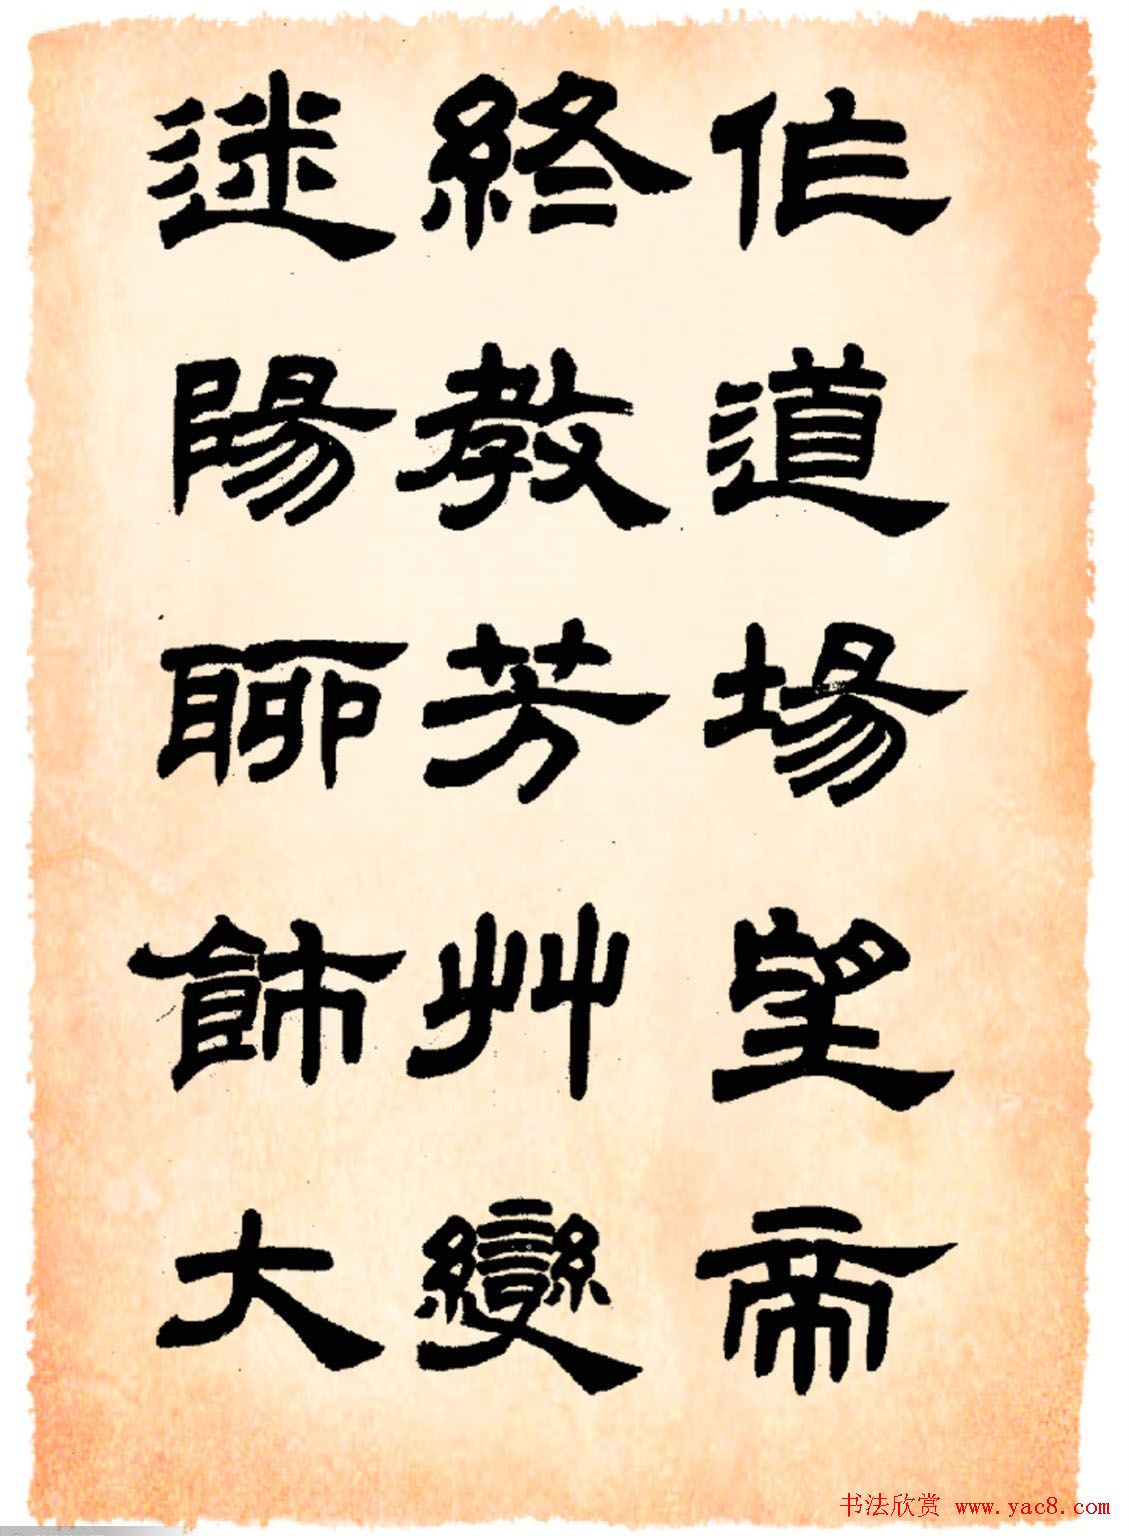 作道場望帝
終教芳艸變
迷陽聊飾大
书法欣赏 www.yac8.com